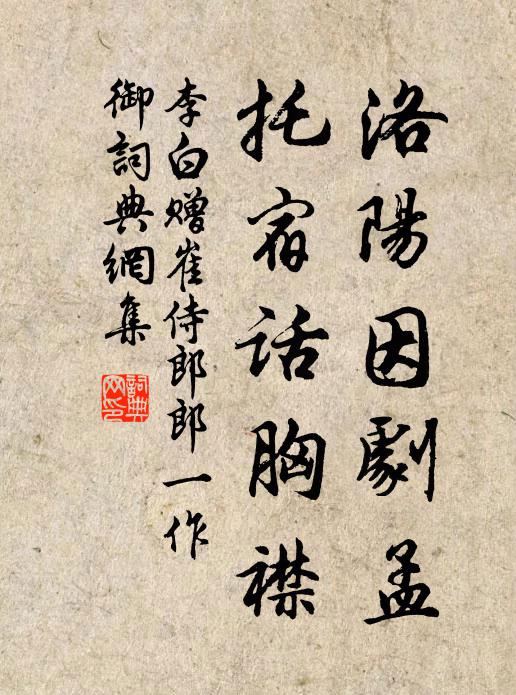 洛陽因劇孟
托宿話胸襟
李白贈崔侍郎郎一作
御詞典網集
詞典網印